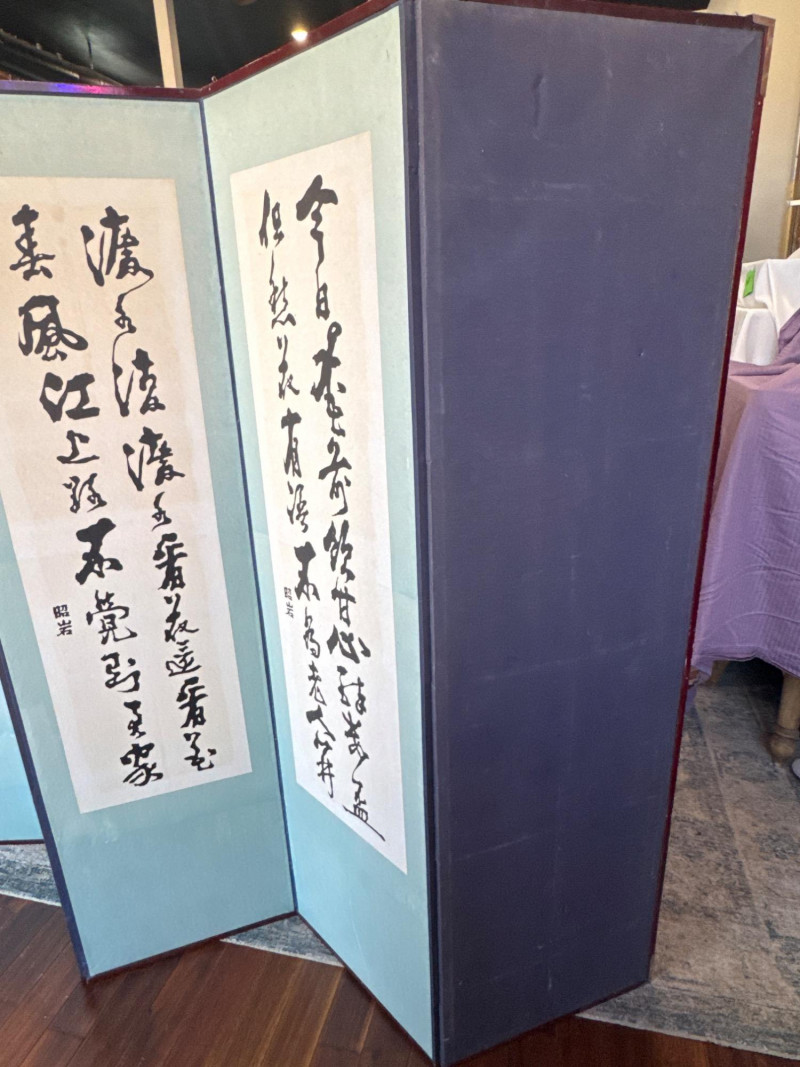 今日花前飲甘心醉數盃
但愁花有語不為老人開
昭岩
渡水復渡水看花還看花
春風江上路不覺到君家
昭岩